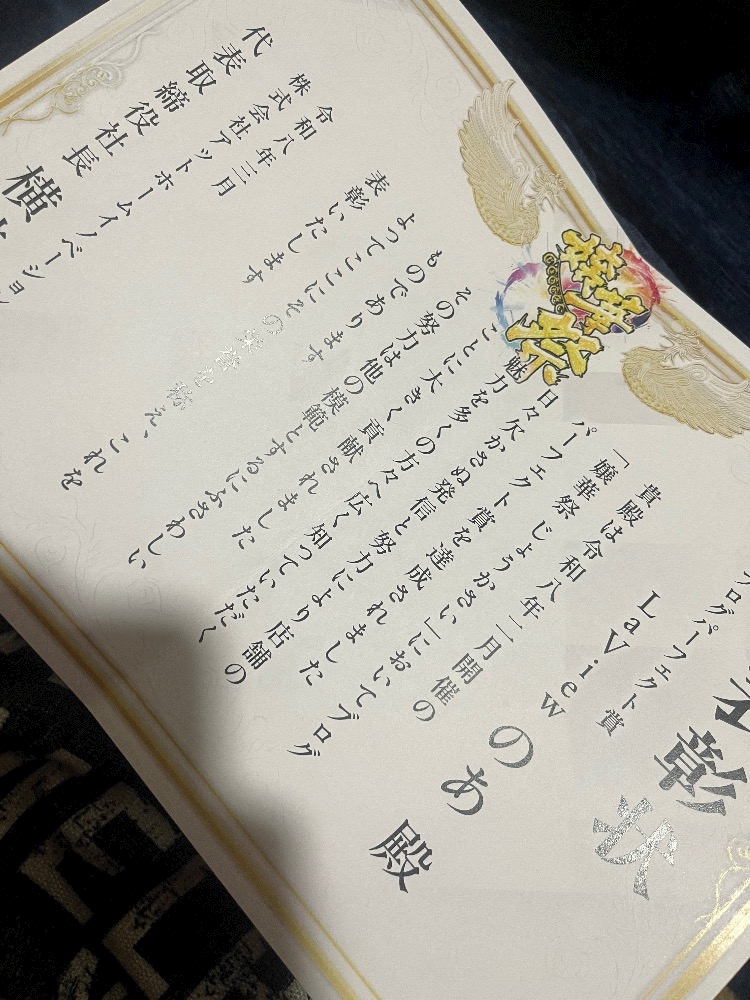 嬢華祭
彰状
ブログパーフェクト賞
LaView
のあ 殿
貴殿は令和八年二月開催の
「嬢華祭 じょうかさい」においてブログ
パーフェクト賞を達成されました
日々欠かさぬ発信と努力により店舗の
魅力を多くの方々へ広く知っていただく
ことに大きく貢献されました
その努力は他の模範とするにふさわしい
ものであります
よってここにその栄誉を称え、これを
表彰いたします
令和八年三月
株式会社アットホームイノベーション
代表取締役社長 横